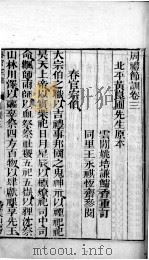 周禮節訓卷三
北平黃崑圃先生原本
雲間姚培謙鱸香重訂
同里王永祺恆齋參閱
春官宗伯
大宗伯之職以吉禮事邦國之鬼神示以禋祀祀
昊天上帝以實柴祀日月星辰以槱燎祀司中司
命飌師雨師以血祭祭社稷五祀五嶽以貍沈祭
山林川澤以疈辜祭四方百物以肆獻祼享先王